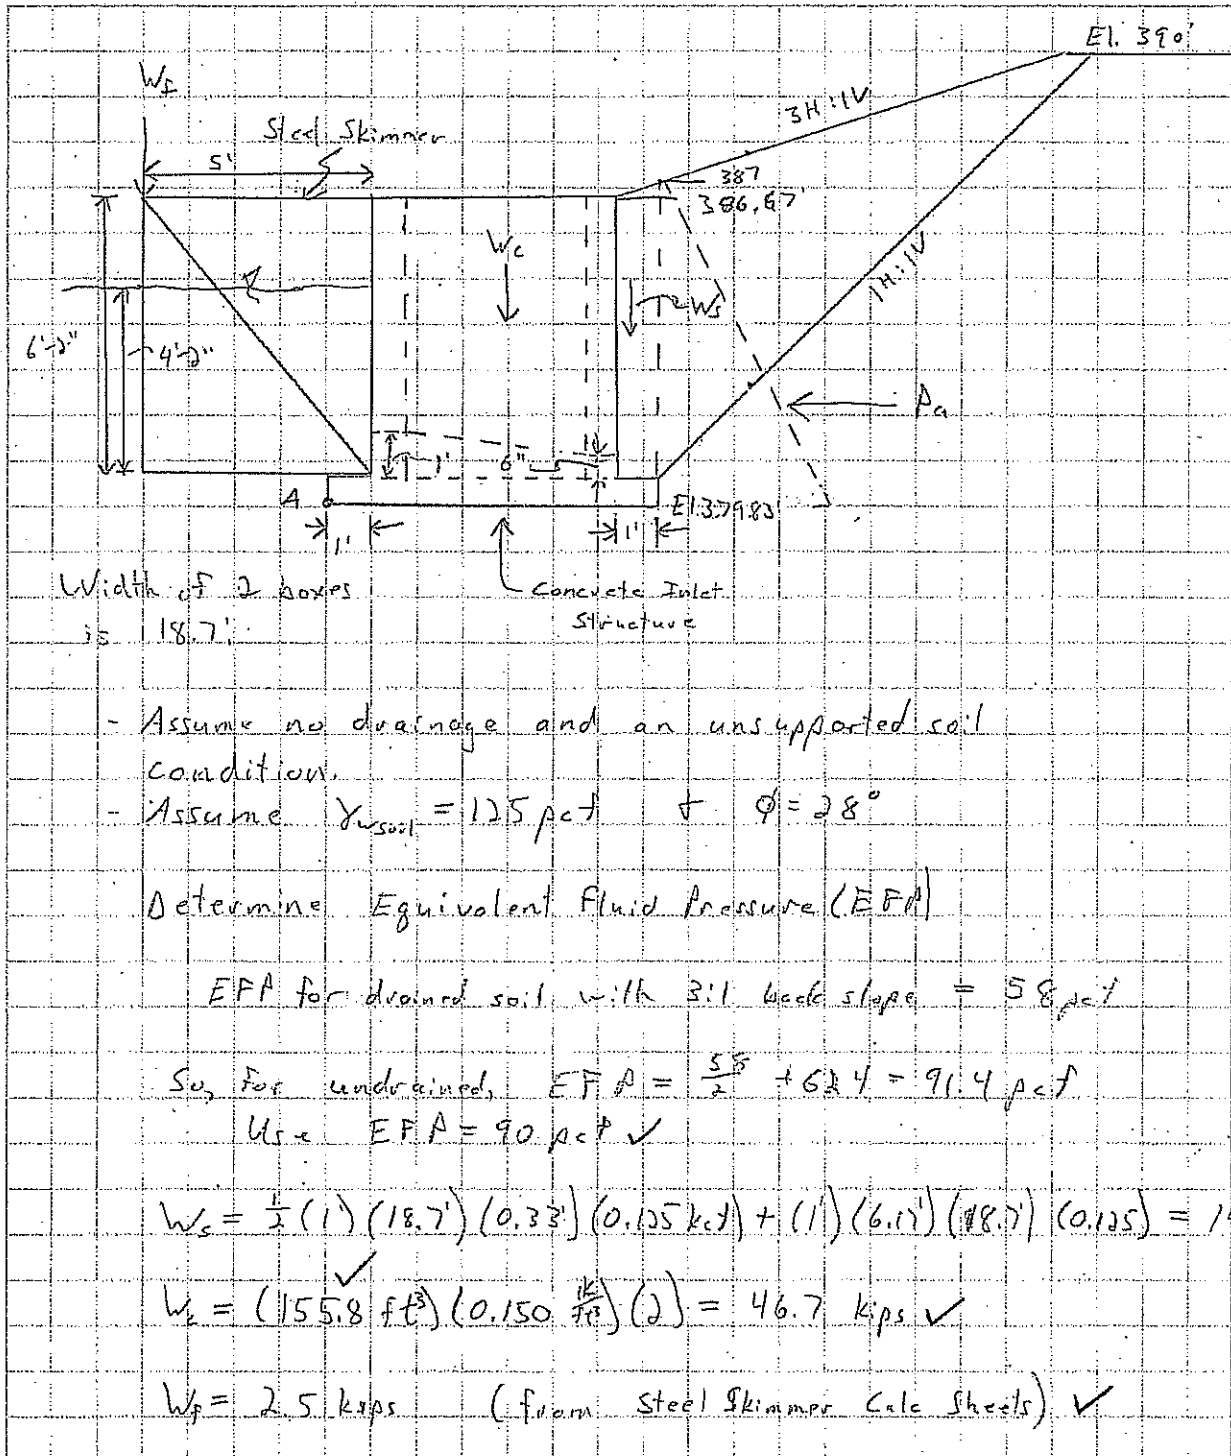 El. 390'
W_f
3H:1V
Steel Skimmer
5'
387
386.67
W_c
W_s
1H:1V
6'-2"
4'-2"
P_a
1'
6"
A
El 379.83'
1'
1'
Width of 2 boxes
is 18.7'
Concrete Inlet
Structure
- Assume no drainage and an unsupported soil
condition.
- Assume γ_wsoil = 125 pcf + φ = 28°
Determine Equivalent Fluid Pressure (EFP)
EFP for drained soil with 3:1 back slope = 58 pcf
So, for undrained, EFP = 58/2 + 62.4 = 91.4 pcf
Use EFP = 90 pcf ✓
W_s = 1/2 (1') (18.7') (0.33') (0.125 kcf) + (1') (6.17') (18.7') (0.125) =
W_c = (155.8 ft³) (0.150 k/ft³) (2) = 46.7 kips ✓
W_f = 2.5 kips (from Steel Skimmer Calc Sheets) ✓